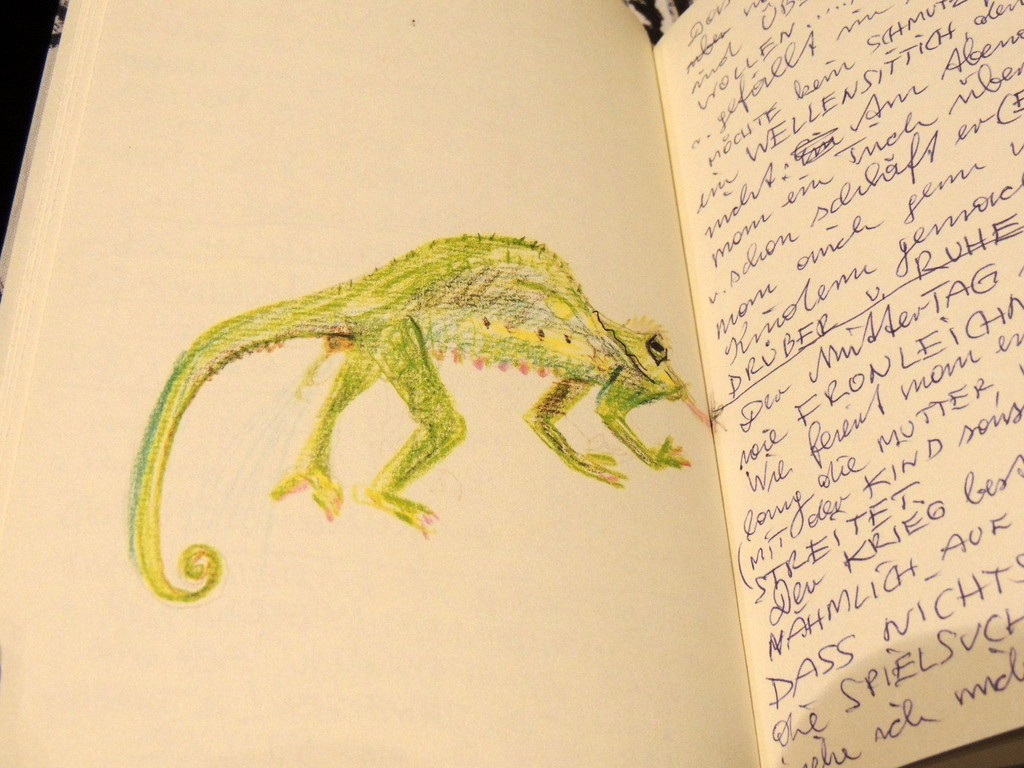 Das
aber
und ÜB
WOLLEN......,
.. gefällt
MÖCHTE kein SCHMUTZ
ein WELLENSITTICH, den
nicht: Am Abend
man ein Tuch über
u. schon schläft er (
man auch gern
Kindern gemach
DRÜBER u. RUHE
Der MutterTAG
wie FRONLEICHN
Wie feiert man
lang die MUTTER,
(MIT der KIND sons
STREITET
Der KRIEG best
NÄHMLICH AUF
DASS NICHTS
die SPIELSUCH
sehe ich mich